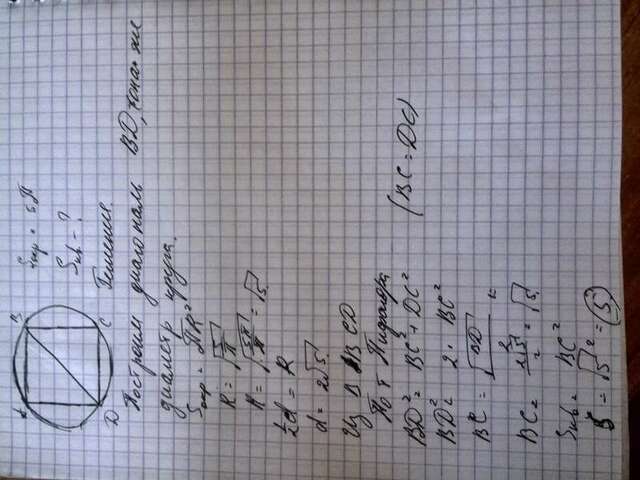 A B
D C
Sкр = 5π
Sкв - ?
Решение.
Построим диагональ BD, она же
диаметр круга.
Sкр = πR²
R = √(S/π)
R = √(5π/π) = √5
½d = R
d = 2√5
Из BCD
По т Пифагора
BD² = BC² + DC² (BC = DC)
BD² = 2 · BC²
BC = √BD
BC = 2√5/2 = √5
Sкв = BC²
S = √5² = (5)